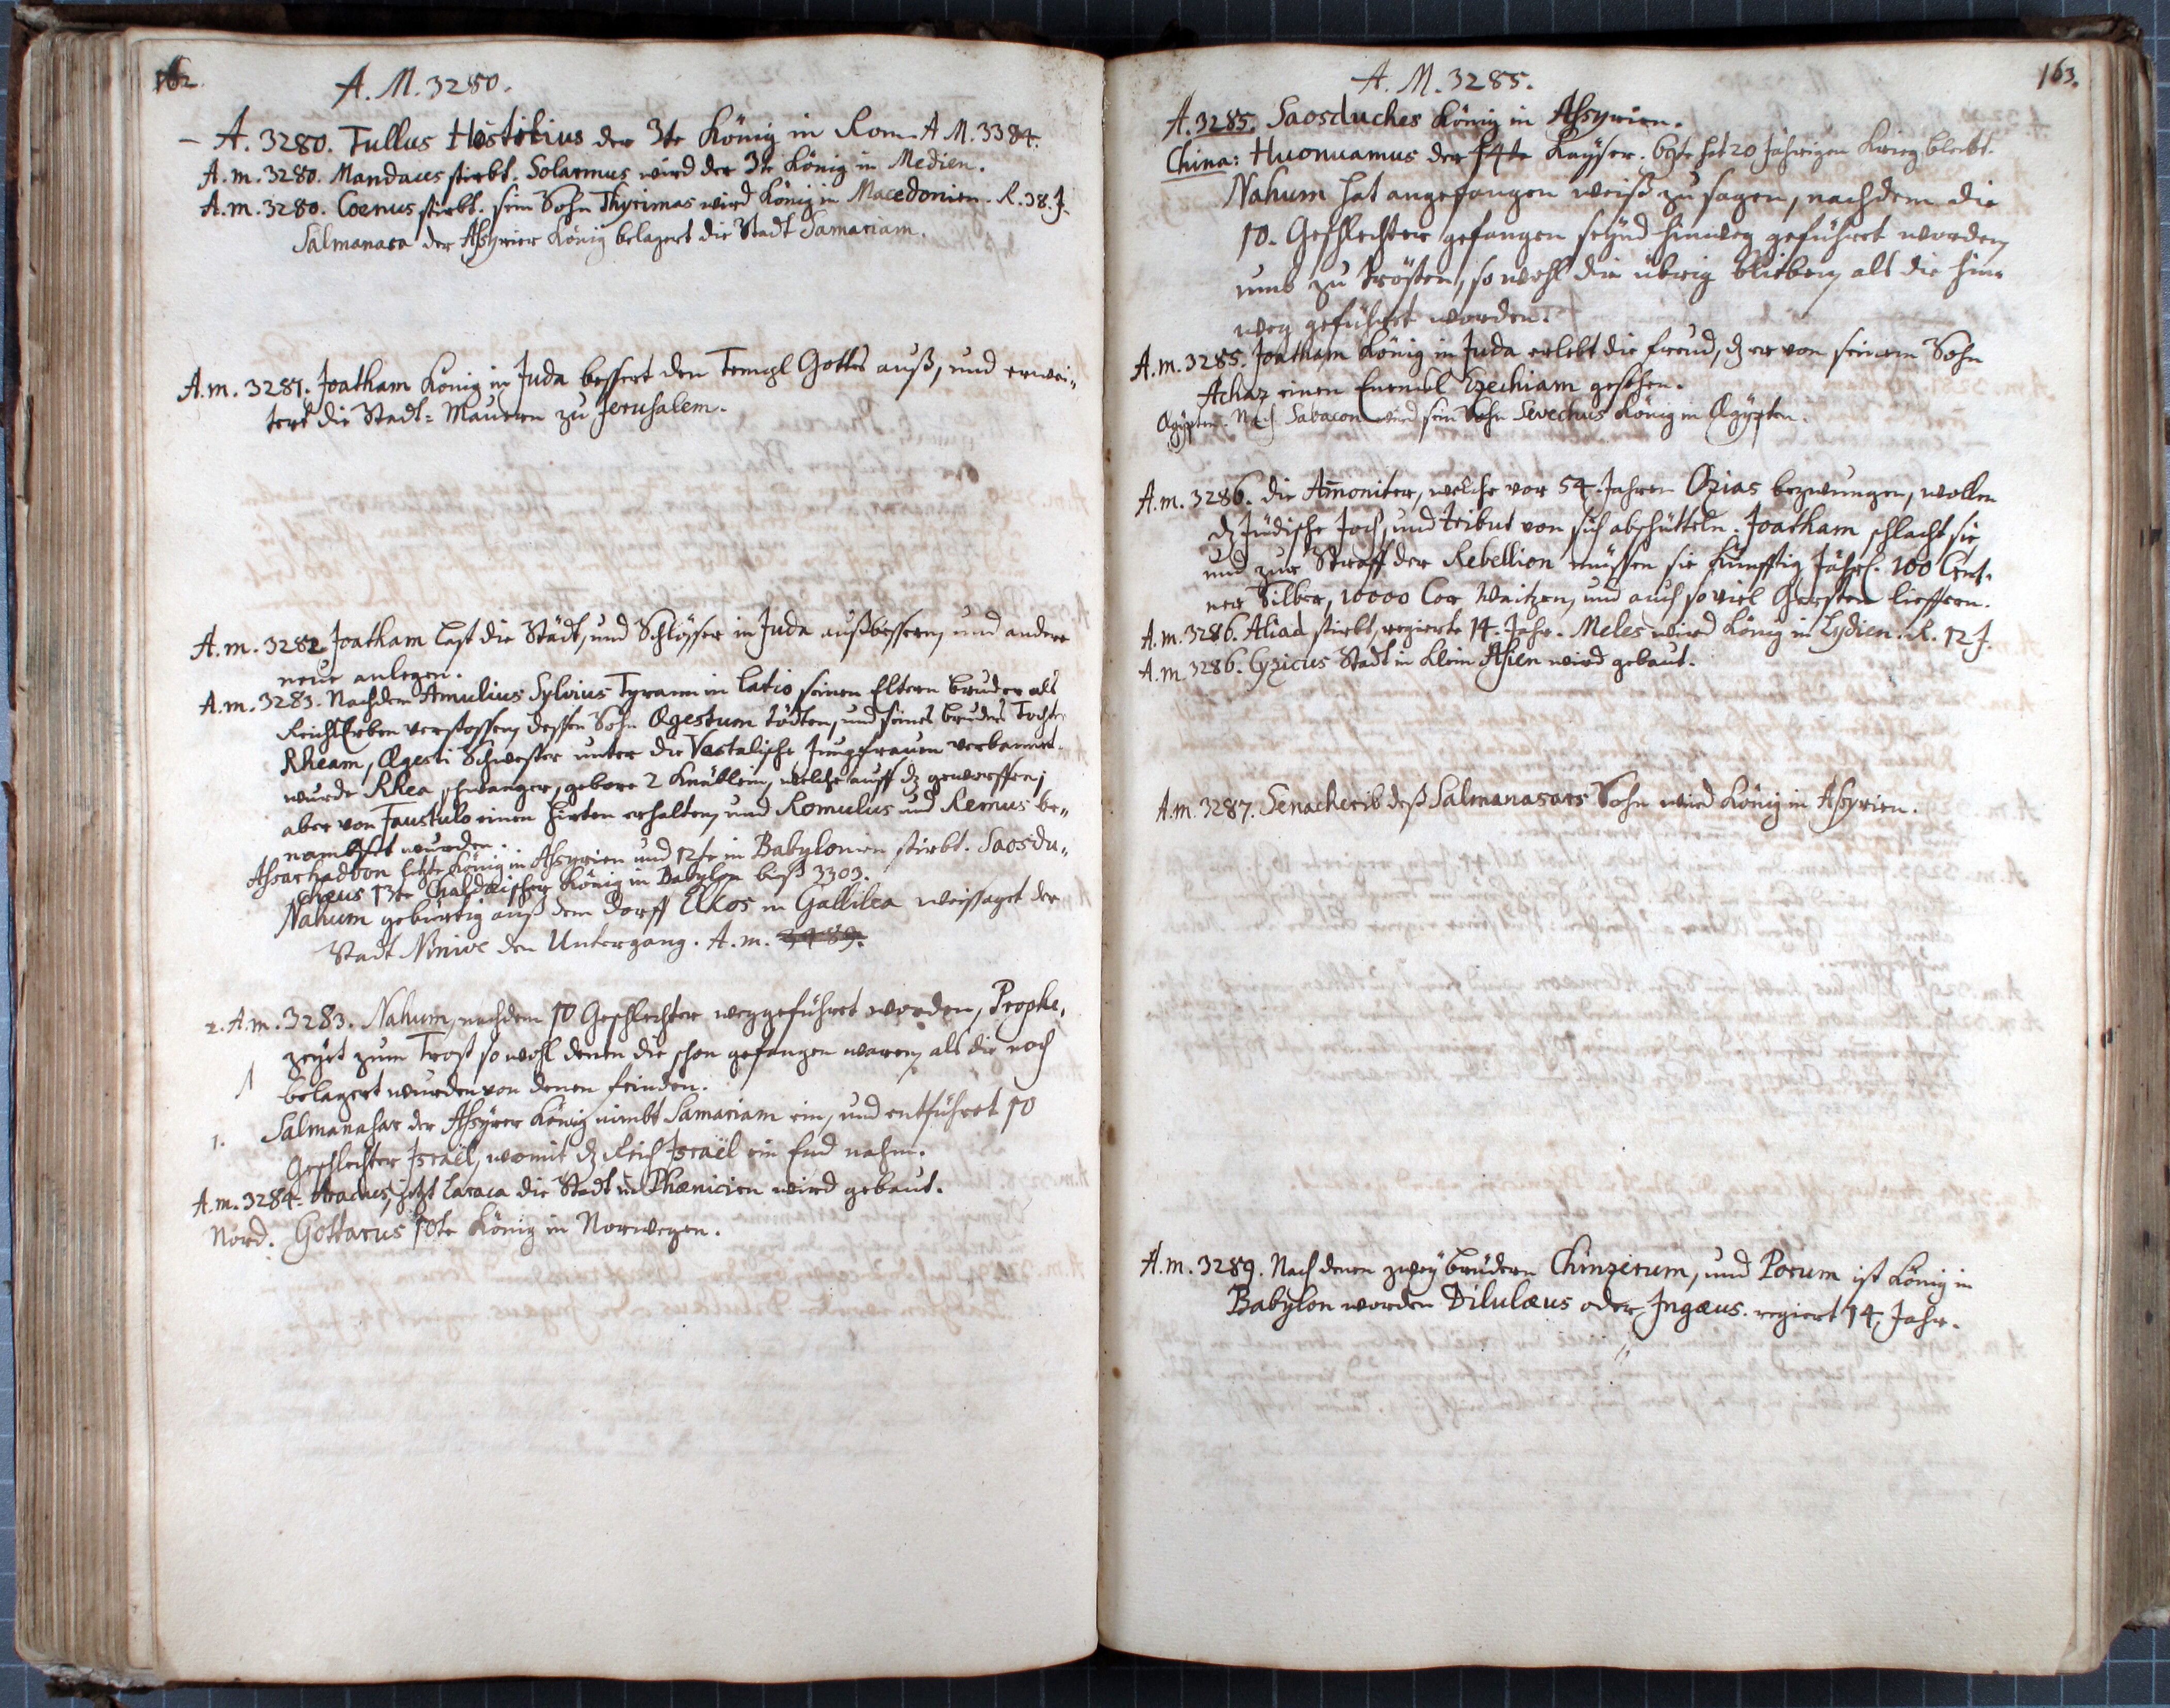 162.
A. M. 3280.
– A. 3280. Tullus Hostilius der 3te König in Rom. A M. 3384.
A. m. 3280. Mandaces stirbt. Solarmus wird der 3te König in Medien.
A. m. 3280. Coenus stirbt. sein Sohn Thyrimas wird König in Macedonien. R. 38. J.
Salmanasa der Assyrier König belagert die Stadt Samariam.
A. m. 3281. Joatham König in Juda bessert den Templ Gottes auß, und erwei„
tert die Stadt=Mauern zu Jerusalem.
A. m. 3282. Joatham last die Städt, und Schlösser in Juda außbessern, und andere
neue anlegen.
A. m. 3283. Nachdem Amulius Sylvius Tyrann in Latio seinen Eltern bruder als
ReichsErben verstossen, dessen Sohn Ægestum tödten, und seines bruders Tochter
Rheam, Ægesti Schwester unter die Vestalische Jungfrauen verbannet.
wurde Rhea schwanger, gebore 2 Knäblein, welche auff dz geworffen,
aber von Faustulo einen Hirten erhalten, und Romulus und Remus be„
nambset wurden.
Assarhaddon letzte König in Assyrien und 12te in Babylonien stirbt. Saosdu„
chæus 13te Chaldæischer König in Babylon biß 3303.
Nahum gebürtig auß dem Dorff Elkos in Gallilea weissaget der
Stadt Ninive den Untergang. A. m. 3489.
2. A. m. 3283. Nahum, nachdem 10 Geschlechter weggeführet worden, Prophe„
zeyet zum Trost so wohl denen die schon gefangen waren, als die noch
belagert wurden von denen feinden.
1. Salmanasar der Assyrer König nimbt Samariam ein, und entführet 10
Geschlechter Israël, womit dz Reich Israël ein End nahm.
A. m. 3284. Aradus, jetzt Laraca die Stadt in Phœnicien wird gebaut.
Nord. Gottarus 10te König in Norwegen.
163.
A. M. 3285.
A. 3285. Saosduches König in Assyrien.
China: Huonuamus der 14te Kaÿser. hat 20 Jährigen Krieg, bleibt.
Nahum hat angefangen weiß zu sagen, nachdem die
10. Geschlechter gefangen seÿnd hinweg geführet worden,
umb zu trösten, so wohl die übrig blieben, als die hin„
weg geführet worden.
A. m. 3285. Joatham König in Juda erlebt die freud, dz er von seinem Sohn
Achaz einen Enenckl Ezechiam gesehen.
Ægypten. Nach Sabacon wird sein Sohn Sevechus König in Ægÿpten.
A. m. 3286. die Am̄oniter, welche vor 54. Jahren Ozias bezwungen, wollen
dz Jüdische Joch, und tribut von sich abschütteln. Joatham schlacht sie,
und zur Straff der Rebellion müssen sie künfftig Jährl. 100 Cent„
ner Silber, 10000 Cor Waitzen, und auch so viel Gersten lieffern.
A. m. 3286. Aliad stirbt, regierte 14. Jahr. Meles wird König in Lydien. R. 12 J.
A. m. 3286. Cyzicus Stadt in klein Asien wird gebaut.
A. m. 3287. Senacherib deß Salmanasars Sohn wird König in Assyrien.
A. m. 3289. Nach denen zweÿ brüdern Chinzerum, und Porum ist König in
Babylon worden Dilulæus oder Jngæus. regiert 14. Jahr.